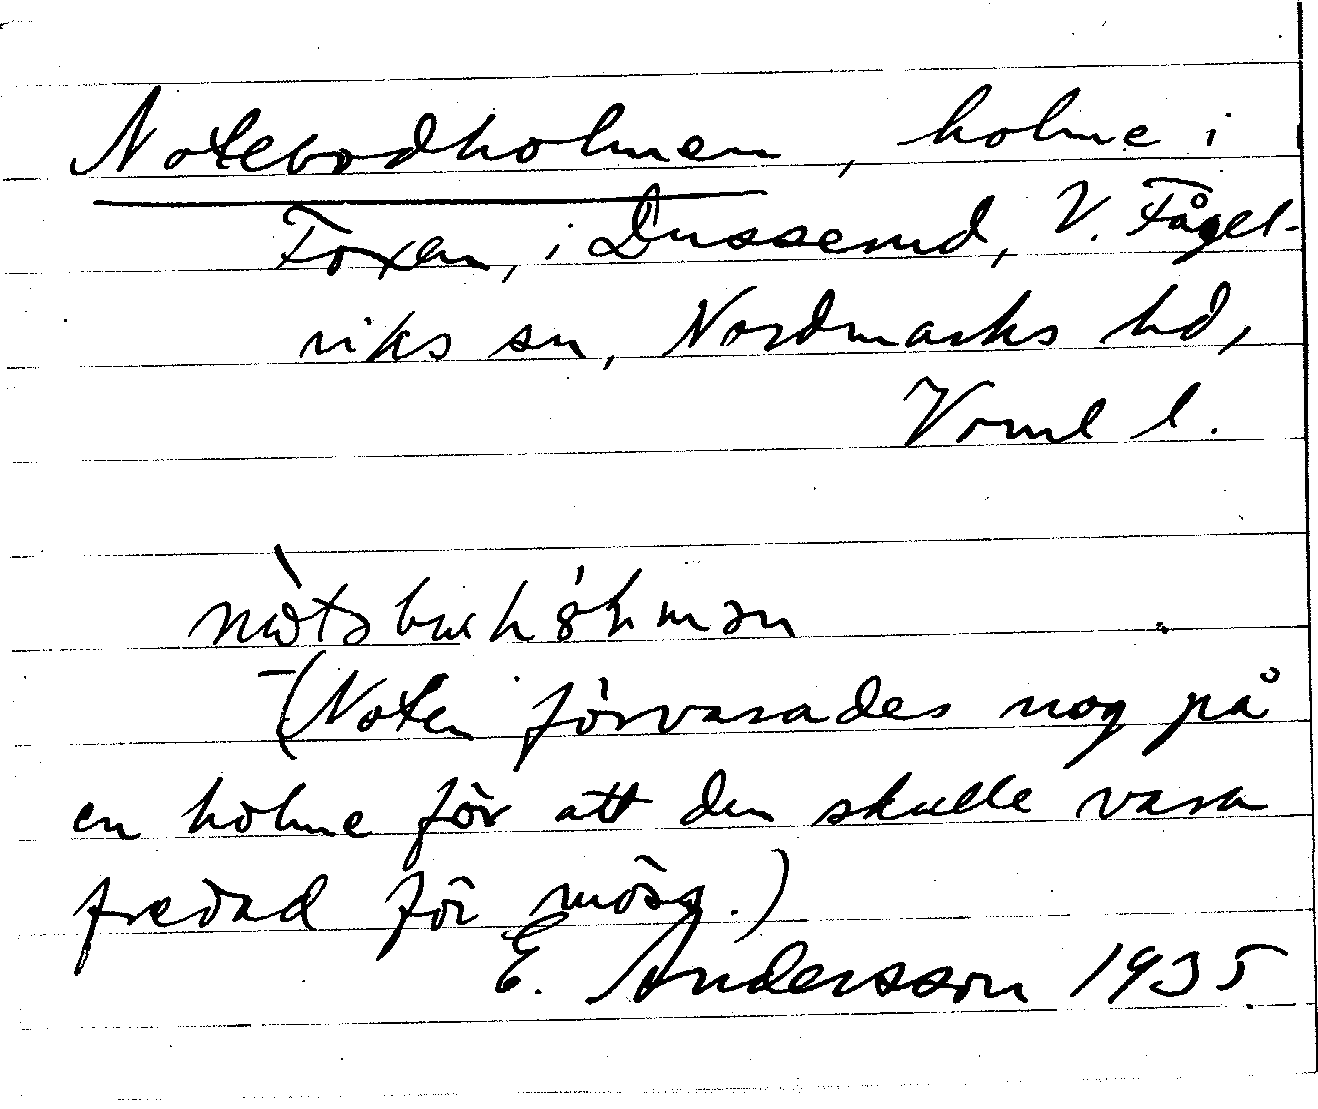 Notebodholmen, holme i
Foxen, i Dusserud, V. Fågel-
viks sn, Nordmarks hd,
Vrml l.
(Noten förvarades nog på
en holme för att den skulle vara
fredad för möss.)
E. Andersson 1935